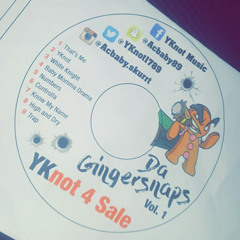 YKnot Music
@Acbaby89
@YKnot1789
@Acbaby.skurrt
1 That's Me
2 YKnot
3 White Knight
4 Baby Momma Drama
5 Numbers
6 Controlla
7 Know My Name
8 High and Dry
9 Trap
Da
Gingersnaps
Vol. 1
YKnot 4 Sale